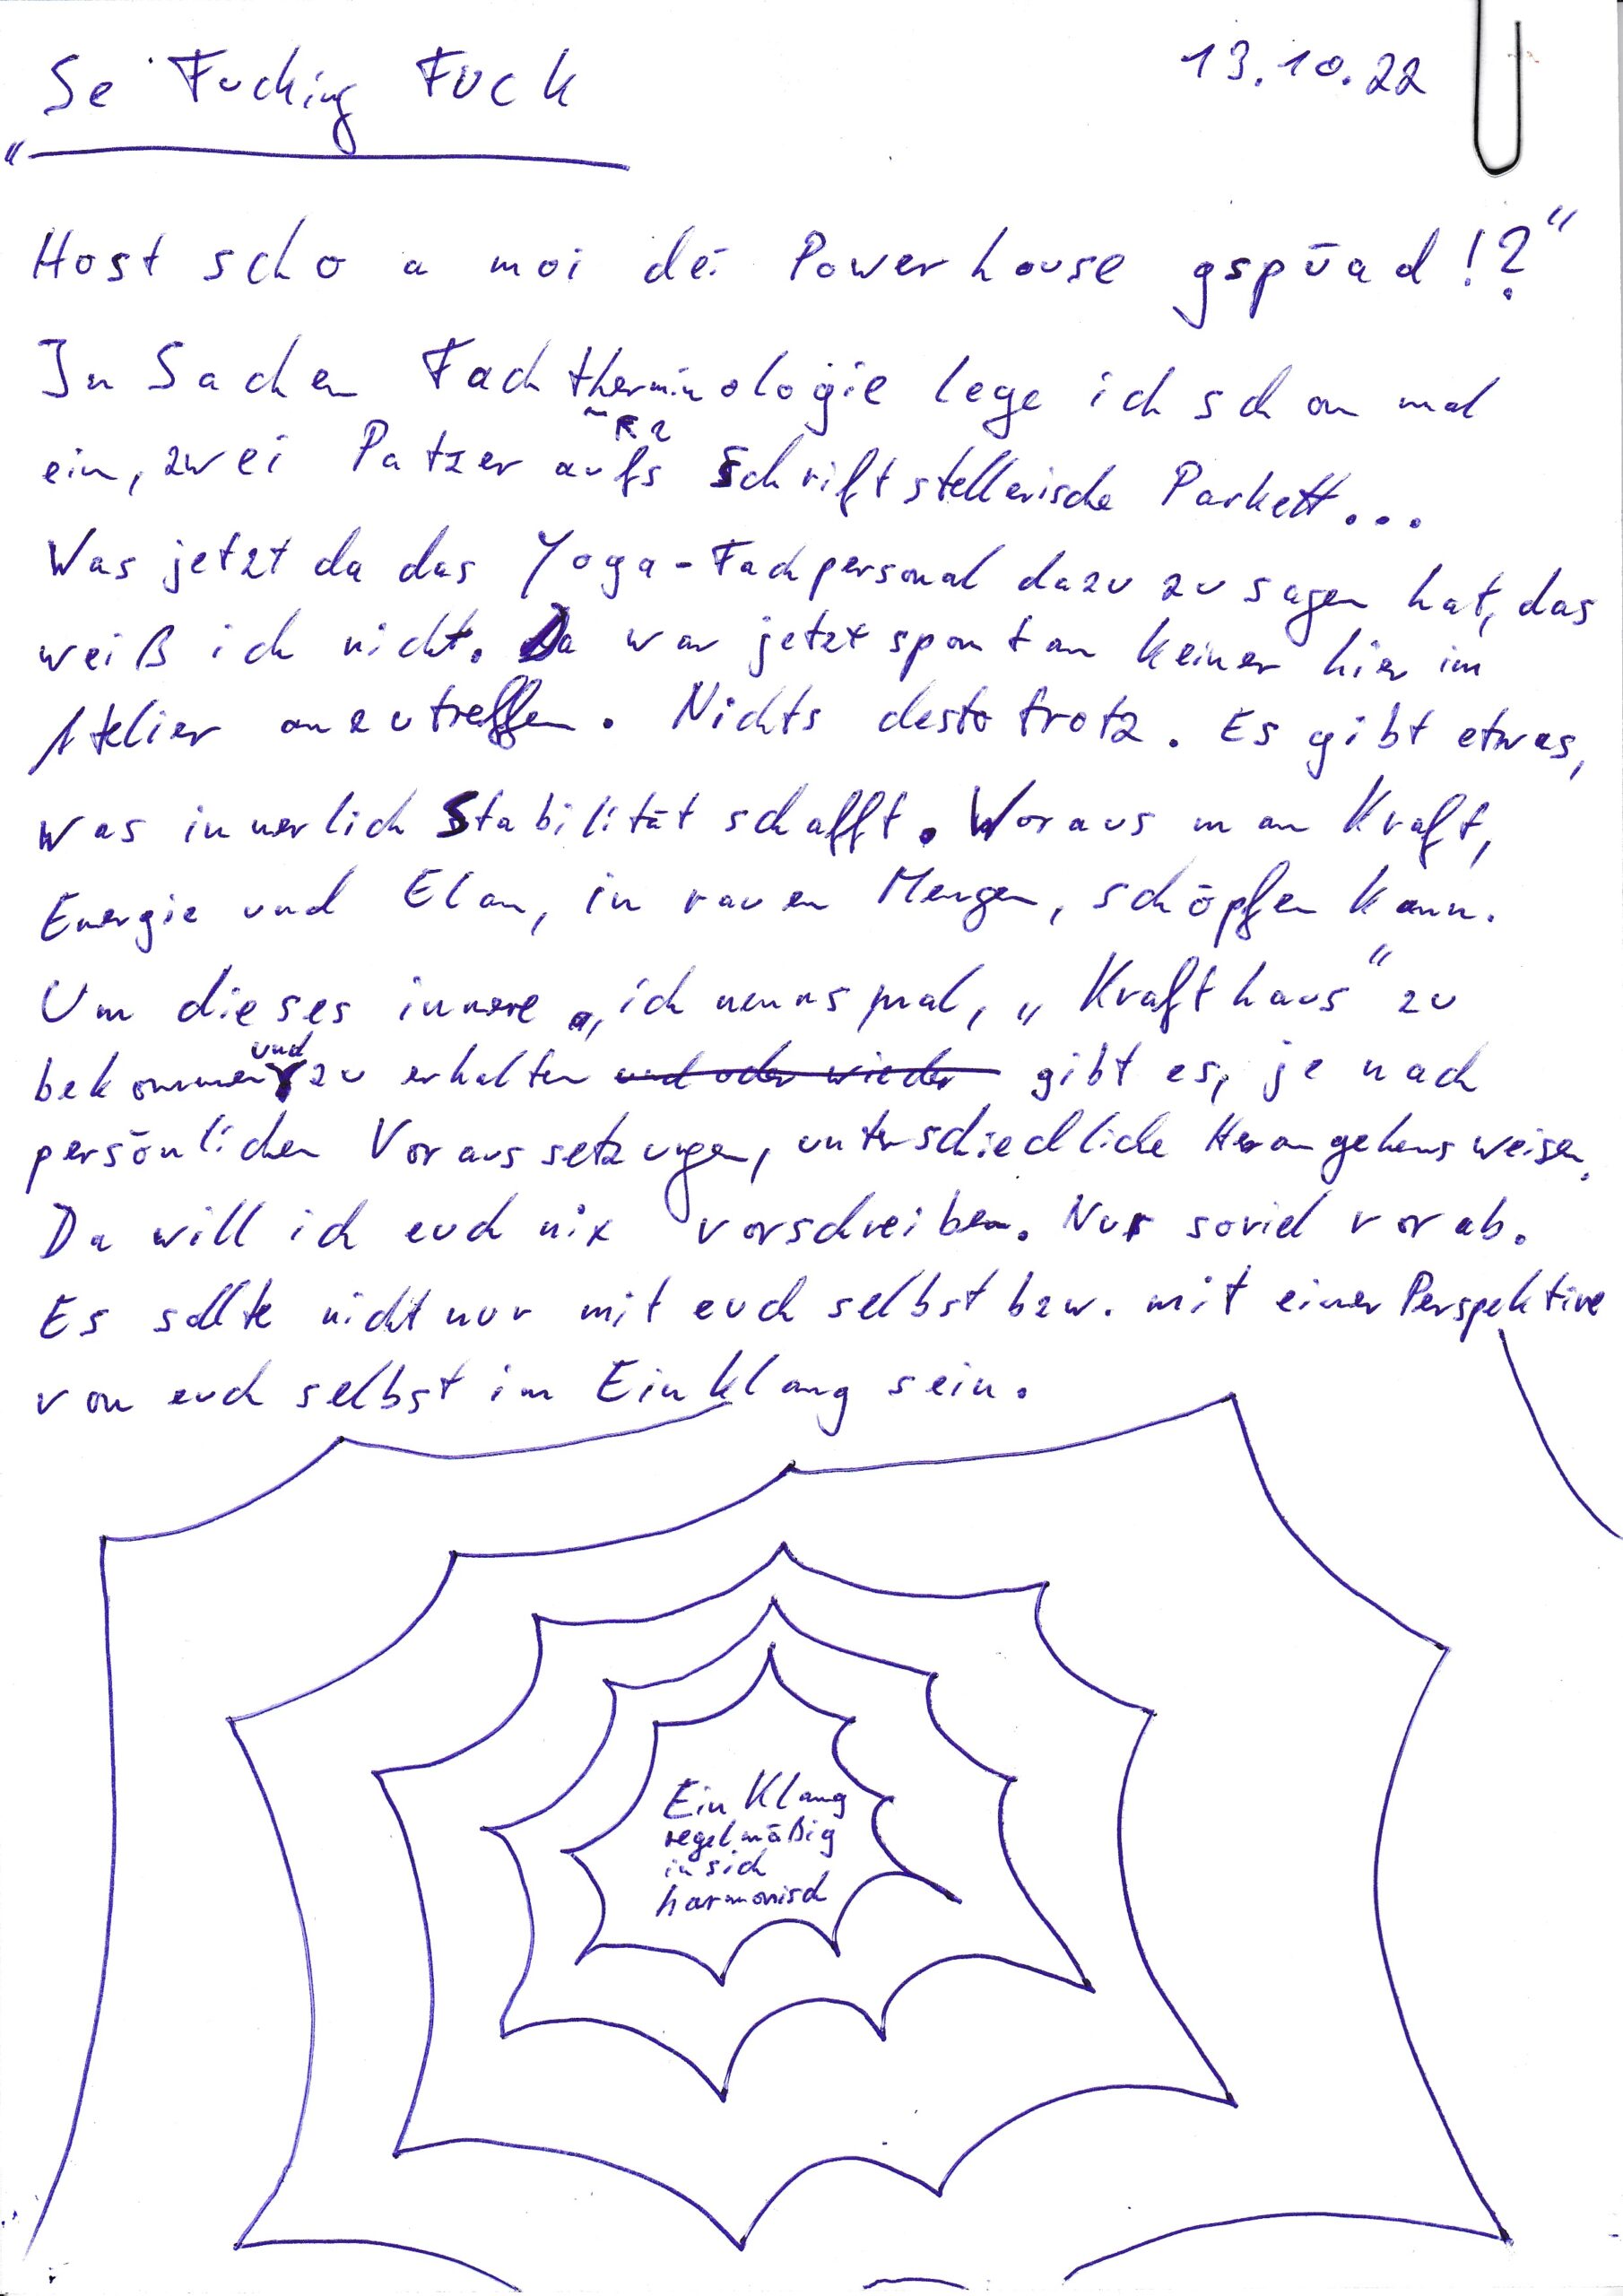 Se Fucking Fuck
13.10.22
„Host scho a moi dei Powerhouse gspüad!?“
In Sachen Fachtherminologie lege ich schon mal
ein, zwei Patzer aufs schriftstellerische Parkett...
Was jetzt da das Yoga-Fachpersonal dazu zu sagen hat, das
weiß ich nicht. Da war jetzt spontan keiner hier im
Atelier anzutreffen. Nichts desto trotz. Es gibt etwas,
was innerlich Stabilität schafft. Woraus man Kraft,
Energie und Elan, in rauen Mengen, schöpfen kann.
Um dieses innere, ich nenns mal, „Krafthaus“ zu
bekommen und zu erhalten und oder wieder gibt es, je nach
persönlichen Voraussetzungen, unterschiedliche Herangehensweisen.
Da will ich euch nix vorschreiben. Nur soviel vorab.
Es sollte nicht nur mit euch selbst bzw. mit einer Perspektive
von euch selbst im Einklang sein.
Ein Klang
regelmäßig
in sich
harmonisch